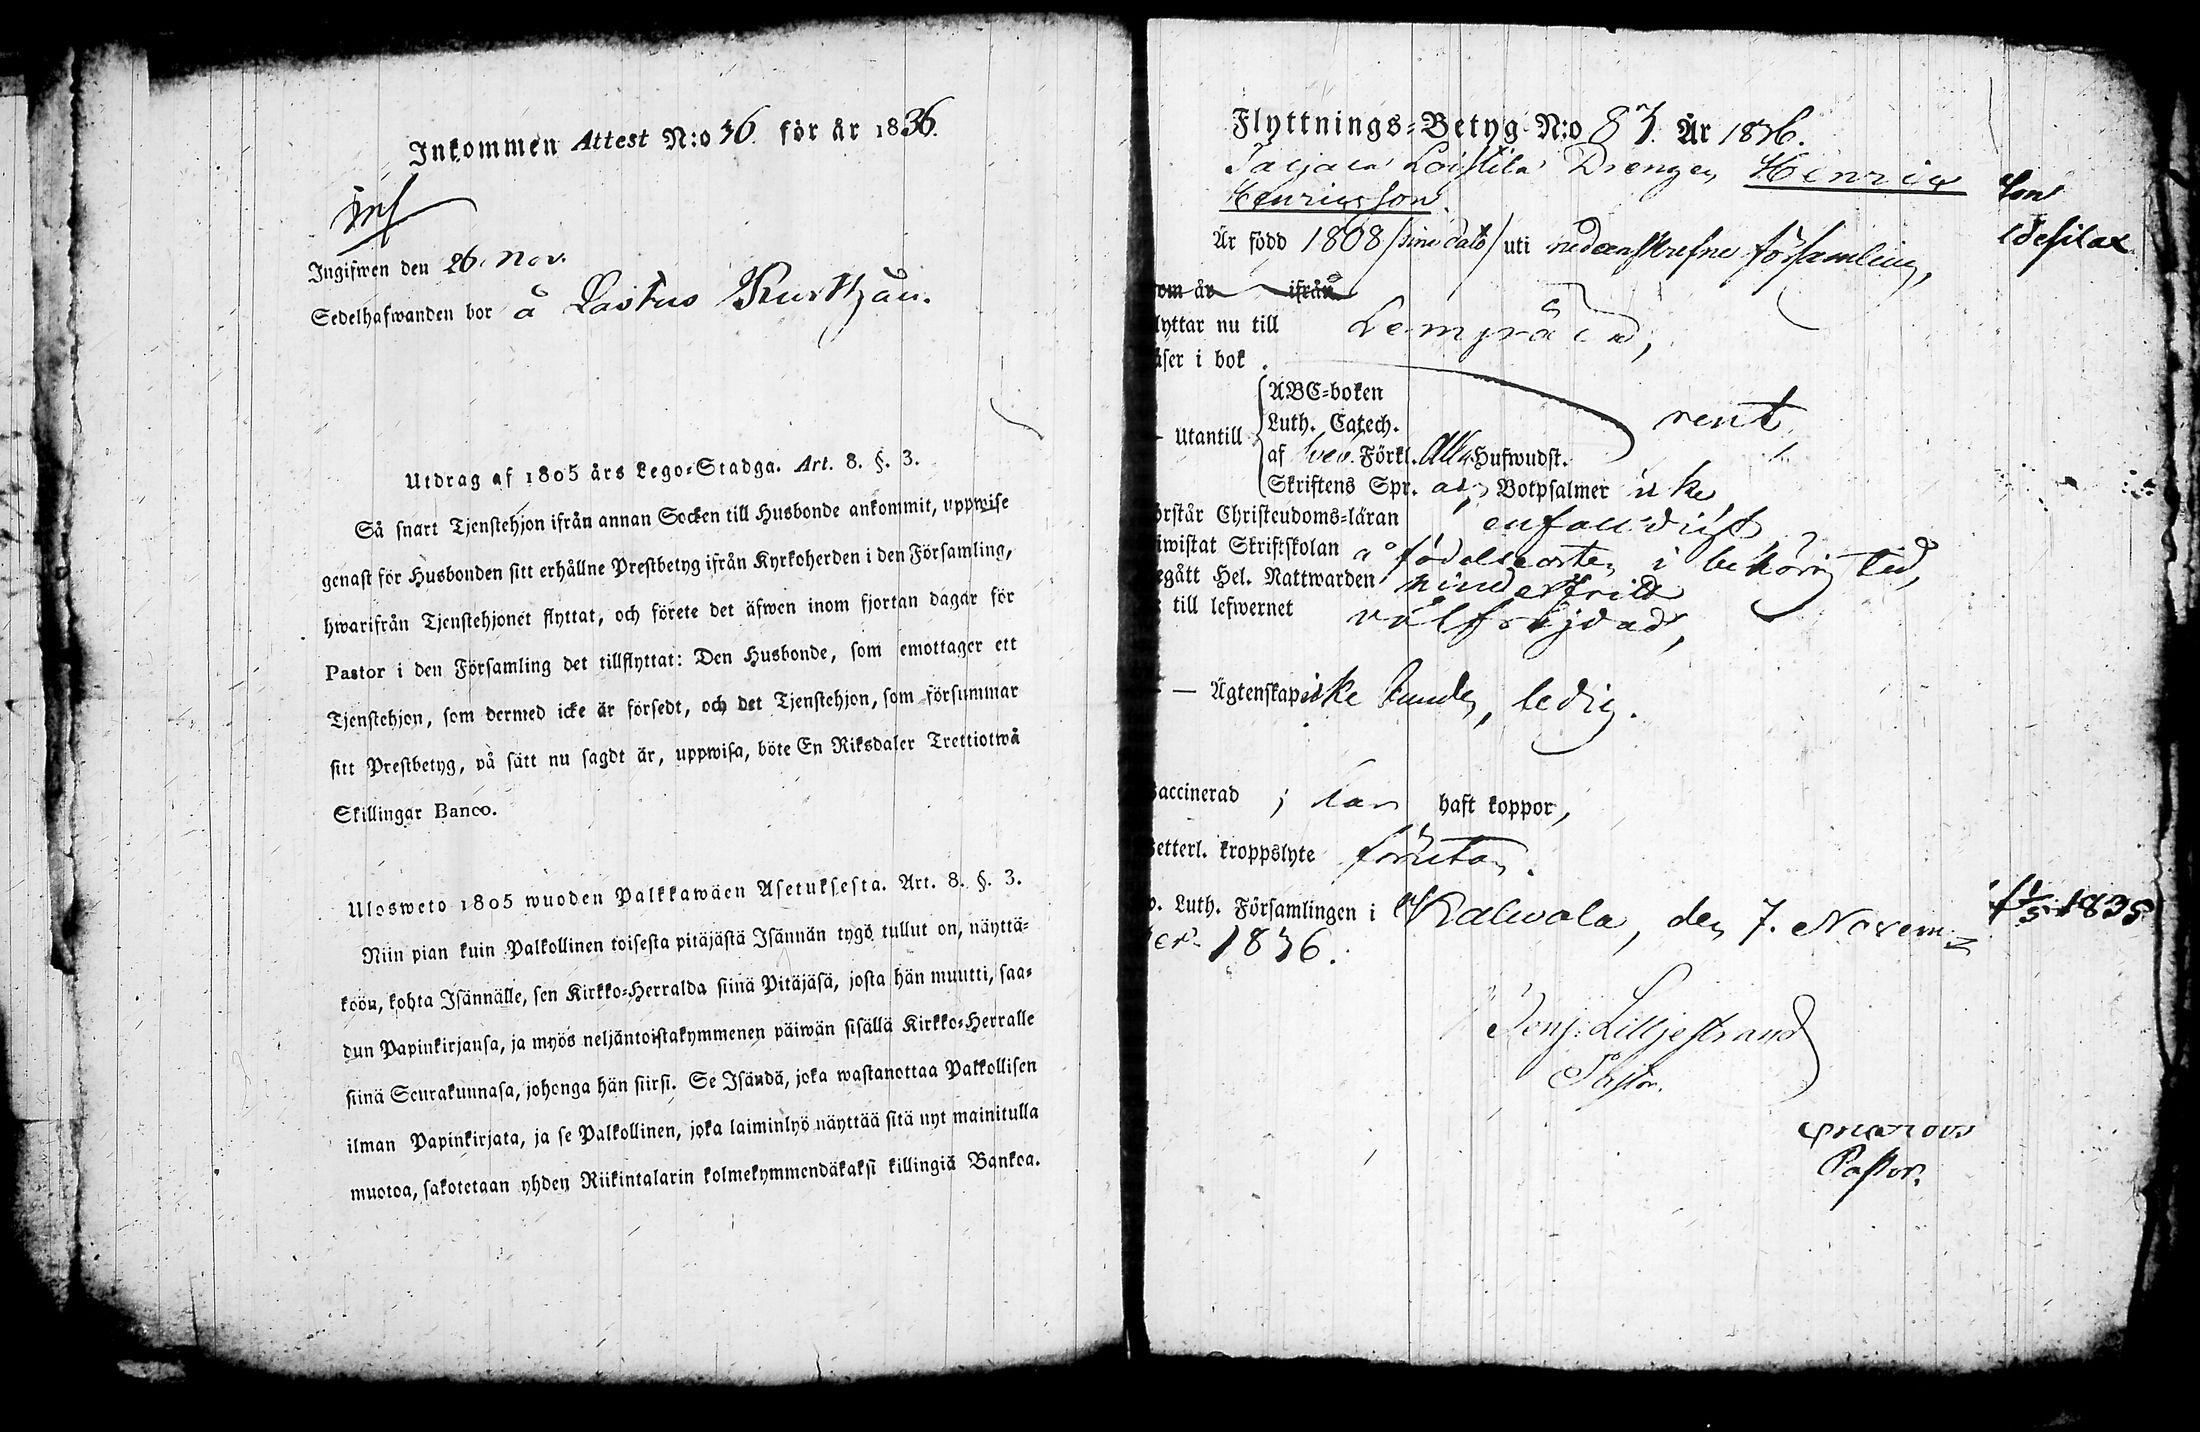 Inkommen Attest N:o 36. för år 1836.
Ingifwen den 26. Nov.
Sedelhafwanden bor å Lastus Kurttjau.
Utdrag af 1805 års Lego-Stadga. Art. 8. §. 3.
Så snart Tjenstehjon ifrån annan Socken till Husbonde ankommit, uppwise
genast för Husbonden sitt erhållne Prestbetyg ifrån Kyrkoherden i den Församling,
hwarifrån Tjenstehjonet flyttat, och förete det äfwen inom fjortan dagar för
Pastor i den Församling det tillflyttat: Den Husbonde, som emottager ett
Tjenstehjon, som dermed icke är försedt, och det Tjenstehjon, som försummar
sitt Prestbetyg, på sätt nu sagdt är, uppwisa, böte En Riksdaler Trettiotwå
Skillingar Banco.
Ulosweto 1805 wuoden Palkkawäen Asetuksesta. Art. 8. §. 3.
Niin pian kuin Palkollinen toisesta pitäjästä Isännän tygö tullut on, näyttä-
köön, kohta Isännälle, sen Kirkko-Herralda siinä Pitäjäsä, josta hän muutti, saa-
dun Papinkirjansa, ja myös neljäntoistakymmenen päiwän sisällä Kirkko-Herralle
siinä Seurakunnasa, johonga hän siirsi. Se Isändä, joka wastanottaa Palkollisen
ilman Papinkirjata, ja se Palkollinen, joka laiminlyö näyttää sitä nyt mainitulla
muotoa, sakotetaan yhden Riikintalarin kolmekymmendäkaksi killingiä Bankoa.
Flyttnings-Betyg N:o 83. År 1836.
Loistila Drengen Henric
Henricsson.
Är född 1808 /sine dato/ uti nedanskrefne församling,
om år ifrån
lyttar nu till Lempälä,
äser i bok
ABC-boken
Luth. Catech. rent,
Utantill
af Sveb. Förkl. Alla Hufwudst.
Skriftens Spr. Botpsalmer icke
örstår Christendoms-läran enfaldigt
iwistat Skriftskolan å födelseorten i behörig tid,
egått Hel. Nattwarden hinderfritt
till lefwernet välfrejdad,
— Ägtenskap icke bunden, ledig.
accinerad ; har haft koppor,
etterl. kroppslyte förutan.
v. Luth. Församlingen i Kalwola, den 7. Novem-
ber 1836.
Benj. Lilljestrand
Pastor.
Pastor.
1835